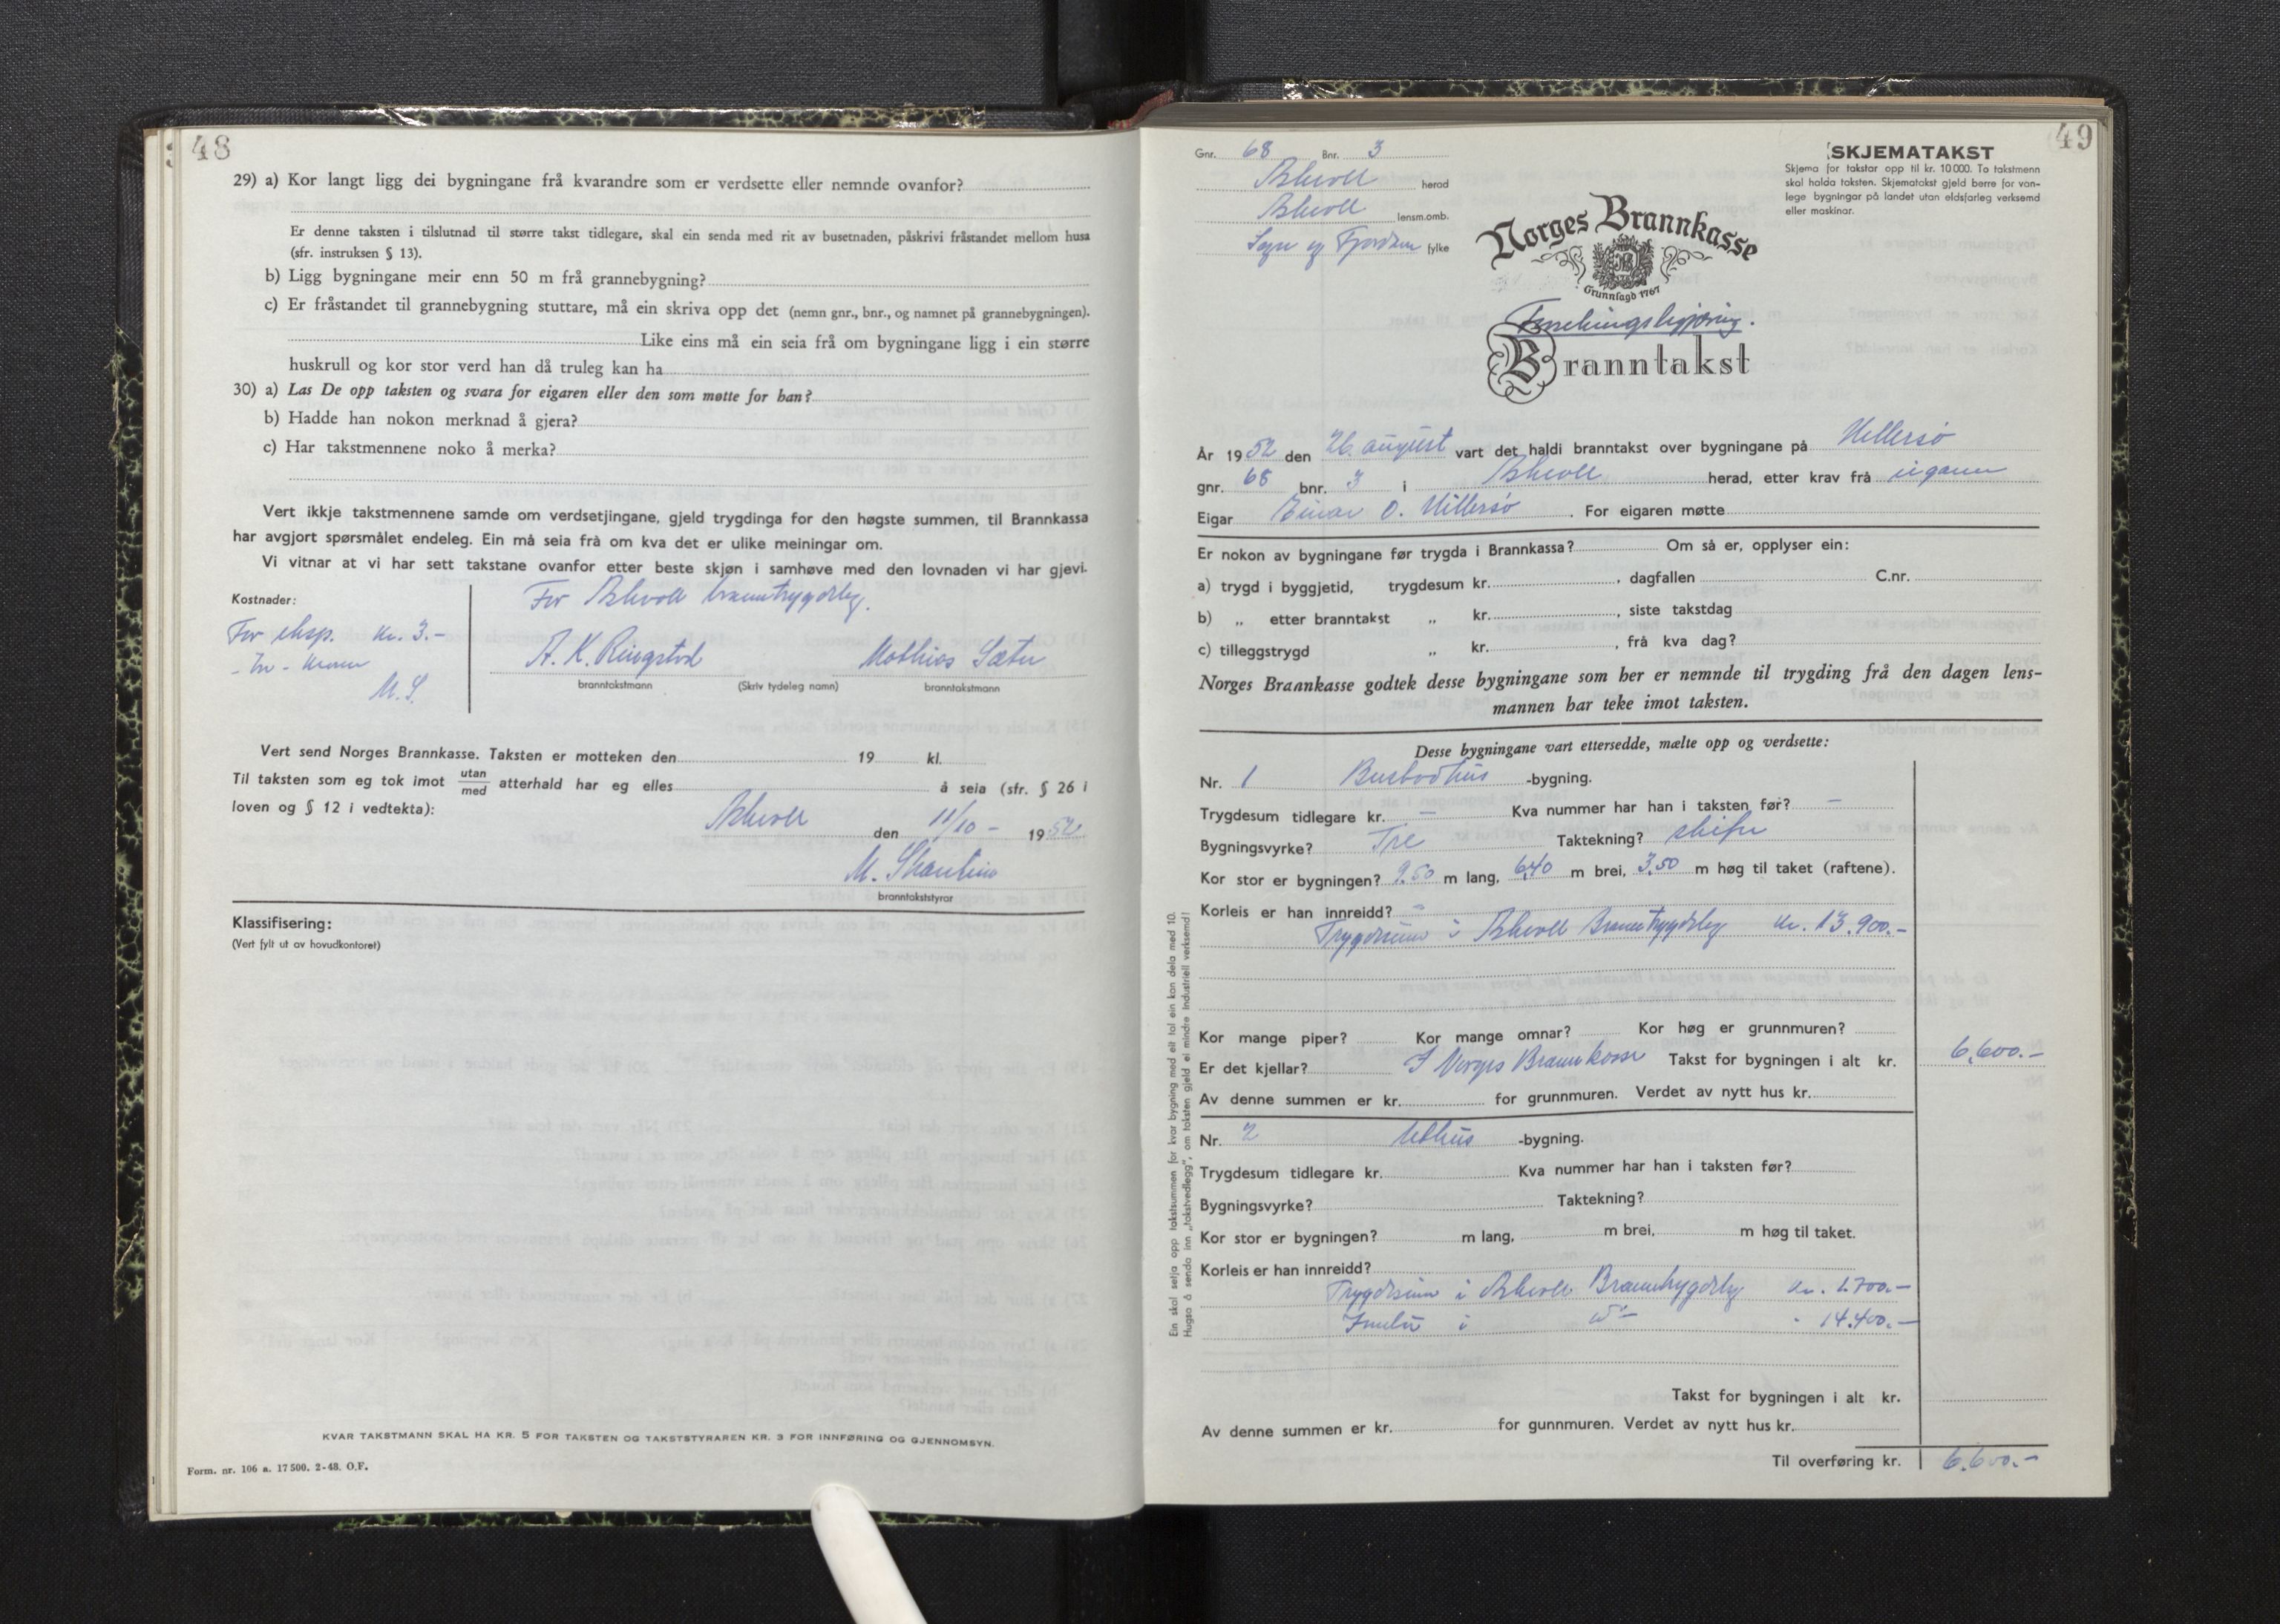 48
29) a) Kor langt ligg dei bygningane frå kvarandre som er verdsette eller nemnde ovanfor?
Er denne taksten i tilslutnad til større takst tidlegare, skal ein senda med rit av busetnaden, påskrivi fråstandet mellom husa
(sfr. instruksen § 13).
b) Ligg bygningane meir enn 50 m frå grannebygning?
c) Er fråstandet til grannebygning stuttare, må ein skriva opp det (nemn gnr., bnr., og namnet på grannebygningen).
Like eins må ein seia frå om bygningane ligg i ein større
huskrull og kor stor verd han då truleg kan ha
30) a) Las De opp taksten og svara for eigaren eller den som møtte for han?
b) Hadde han nokon merknad å gjera?
c) Har takstmennene noko å merka?
Vert ikkje takstmennene samde om verdsetjingane, gjeld trygdinga for den høgste summen, til Brannkassa
har avgjort spørsmålet endeleg. Ein må seia frå om kva det er ulike meiningar om.
Vi vitnar at vi har sett takstane ovanfor etter beste skjøn i samhøve med den lovnaden vi har gjevi.
Kostnader:
For Askvoll branntrygdelag.
For eksp. kr. 3.-
- Tre - kroner
M.S.
A. K. Ringstad
Mathias Sæter
branntakstmann (Skriv tydeleg namn) branntakstmann
Vert send Norges Brannkasse. Taksten er motteken den 19 kl.
Til taksten som eg tok imot utan/med atterhald har eg elles å seia (sfr. § 26 i
loven og § 12 i vedtekta):
Askvoll den 11/10 - 1952
M.
branntakststyrar
Klassifisering:
(Vert fylt ut av hovudkontoret)
KVAR TAKSTMANN SKAL HA KR. 5 FOR TAKSTEN OG TAKSTSTYRAREN KR. 3 FOR INNFØRING OG GJENNOMSYN.
Form. nr. 106 a. 17 500. 2-48. O.F.
49
Gnr. 68 Bnr. 3
Askvoll herad
Askvoll lensm.omb.
Sogn og Fjordane fylke
SKJEMATAKST
Skjema for takstar opp til kr. 10 000. To takstmenn
skal halda taksten. Skjematakst gjeld berre for van-
lege bygningar på landet utan eldsfarleg verksemd
eller maskinar.
Norges Brannkasse
Grunnlagd 1767
Branntakst
År 1952 den 26. august vart det haldi branntakst over bygningane på Hellersø
gnr. 68 bnr. 3 i Askvoll herad, etter krav frå eigaren
Eigar Einar O. Hillersø. For eigaren møtte
Er nokon av bygningane før trygda i Brannkassa? Om så er, opplyser ein:
a) trygd i byggjetid, trygdesum kr. , dagfallen C.nr.
b) „ etter branntakst „ kr. , siste takstdag
c) tilleggstrygd „ kr. , frå kva dag?
Norges Brannkasse godtek desse bygningane som her er nemnde til trygding frå den dagen lens-
mannen har teke imot taksten.
Desse bygningane vart ettersedde, mælte opp og verdsette:
Nr. 1 Bustadhus -bygning.
Trygdesum tidlegare kr. - Kva nummer har han i taksten før? -
Bygningsvyrke? Tre Taktekning? skifer
Kor stor er bygningen? 9.50 m lang, 6,40 m brei, 3,50 m høg til taket (raftene).
Korleis er han innreidd?
Trygdesum i Askvoll Branntrygdelag kr. 13.900.-
Kor mange piper? Kor mange omnar? Kor høg er grunnmuren?
Er det kjellar? I Norges Brannkasse Takst for bygningen i alt kr. 6.600.-
Av denne summen er kr. for grunnmuren. Verdet av nytt hus kr.
Nr. 2 Uthus -bygning.
Trygdesum tidlegare kr. Kva nummer har han i taksten før?
Bygningsvyrke? Taktekning?
Kor stor er bygningen? m lang, m brei, m høg til taket.
Korleis er han innreidd?
Trygdesum i Askvoll Branntrygdelag kr. 1.700.-
i 14.400.-
Takst for bygningen i alt kr.
Av denne summen er kr. for gunnmuren. Verdet av nytt hus kr.
Til overføring kr. 6.600.-
Ein skal setja opp takstsummen for kvar bygning med eit tal ein kan dela med 10.
Hugso å senda inn „takstvedlegg", om taksten gjeld ei mindre Industriell verksemd!